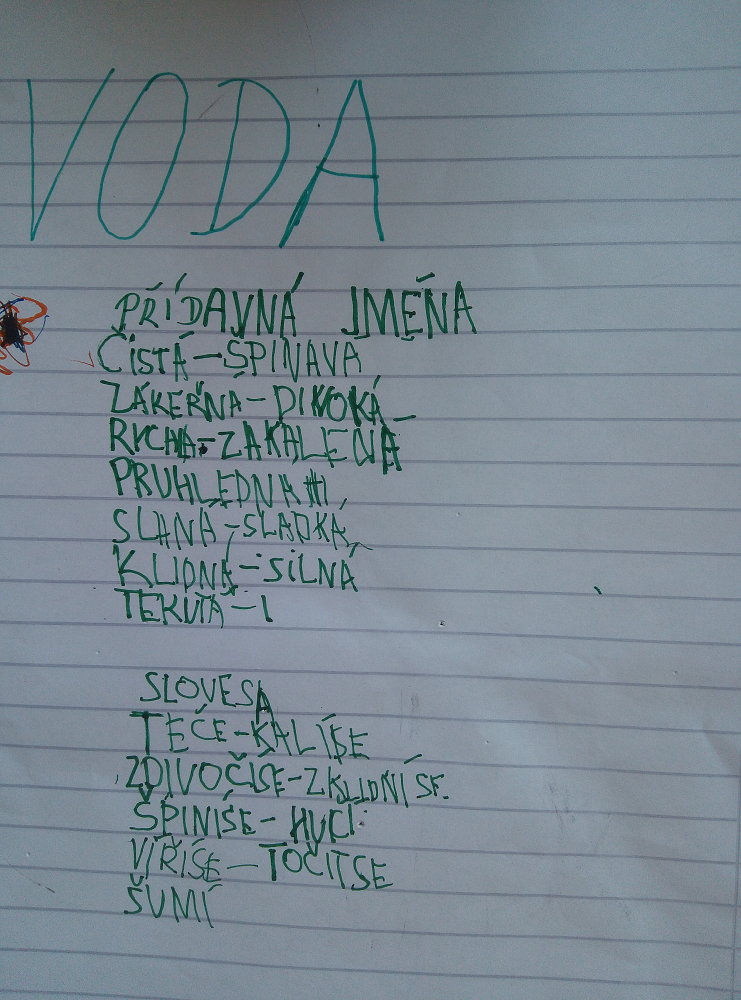 VODA
PŘÍDAVNÁ JMÉNA
ČISTÁ-ŠPINAVA
ZÁKEŘNÁ-DIVOKÁ
RYCHA-ZAKALENÁ
PRUHLEDNA
SLANÁ-SLADKÁ
KLIDNÁ-SILNÁ
TEKUTÁ-
SLOVESA
TEČE-KALÍSE
ZDIVOČÍSE-ZKLIDNÍ SE.
ŠPINÍSE-HUČÍ
VÍŘÍSE-TOČITSE
ŠUMÍ